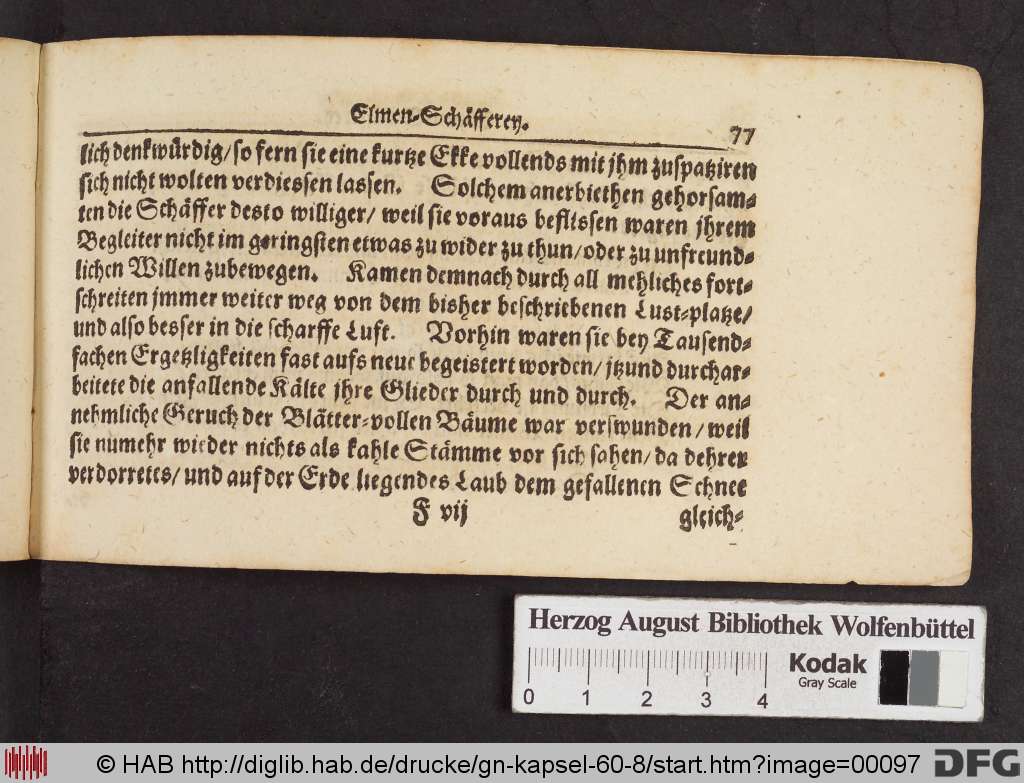 Elmen-Schäfferey. 77
lich denkwürdig/ so fern sie eine kurtze Ekke vollends mit jhm zuspatziren
sich nicht wolten verdiessen lassen. Solchem anerbiethen gehorsam-
ten die Schäffer desto williger/ weil sie voraus beflissen waren jhrem
Begleiter nicht im geringsten etwas zu wider zu thun/ oder zu unfreund-
lichen Willen zubewegen. Kamen demnach durch all mehliches fort-
schreiten jmmer weiter weg von dem bisher beschriebenen Lust-platze/
und also besser in die scharffe Luft. Vorhin waren sie bey Tausend-
fachen Ergetzligkeiten fast aufs neue begeistert worden/ jtzund durchar-
beitete die anfallende Kälte jhre Glieder durch und durch. Der an-
nehmliche Geruch der Blätter-vollen Bäume war verswunden/ weil
sie numehr wieder nichts als kahle Stämme vor sich sahen/ da dehren
verdorrettes/ und auf der Erde liegendes Laub dem gefallenen Schnee
F vij gleich-
Herzog August Bibliothek Wolfenbüttel
Kodak
Gray Scale
0 1 2 3 4
© HAB http://diglib.hab.de/drucke/gn-kapsel-60-8/start.htm?image=00097
DFG